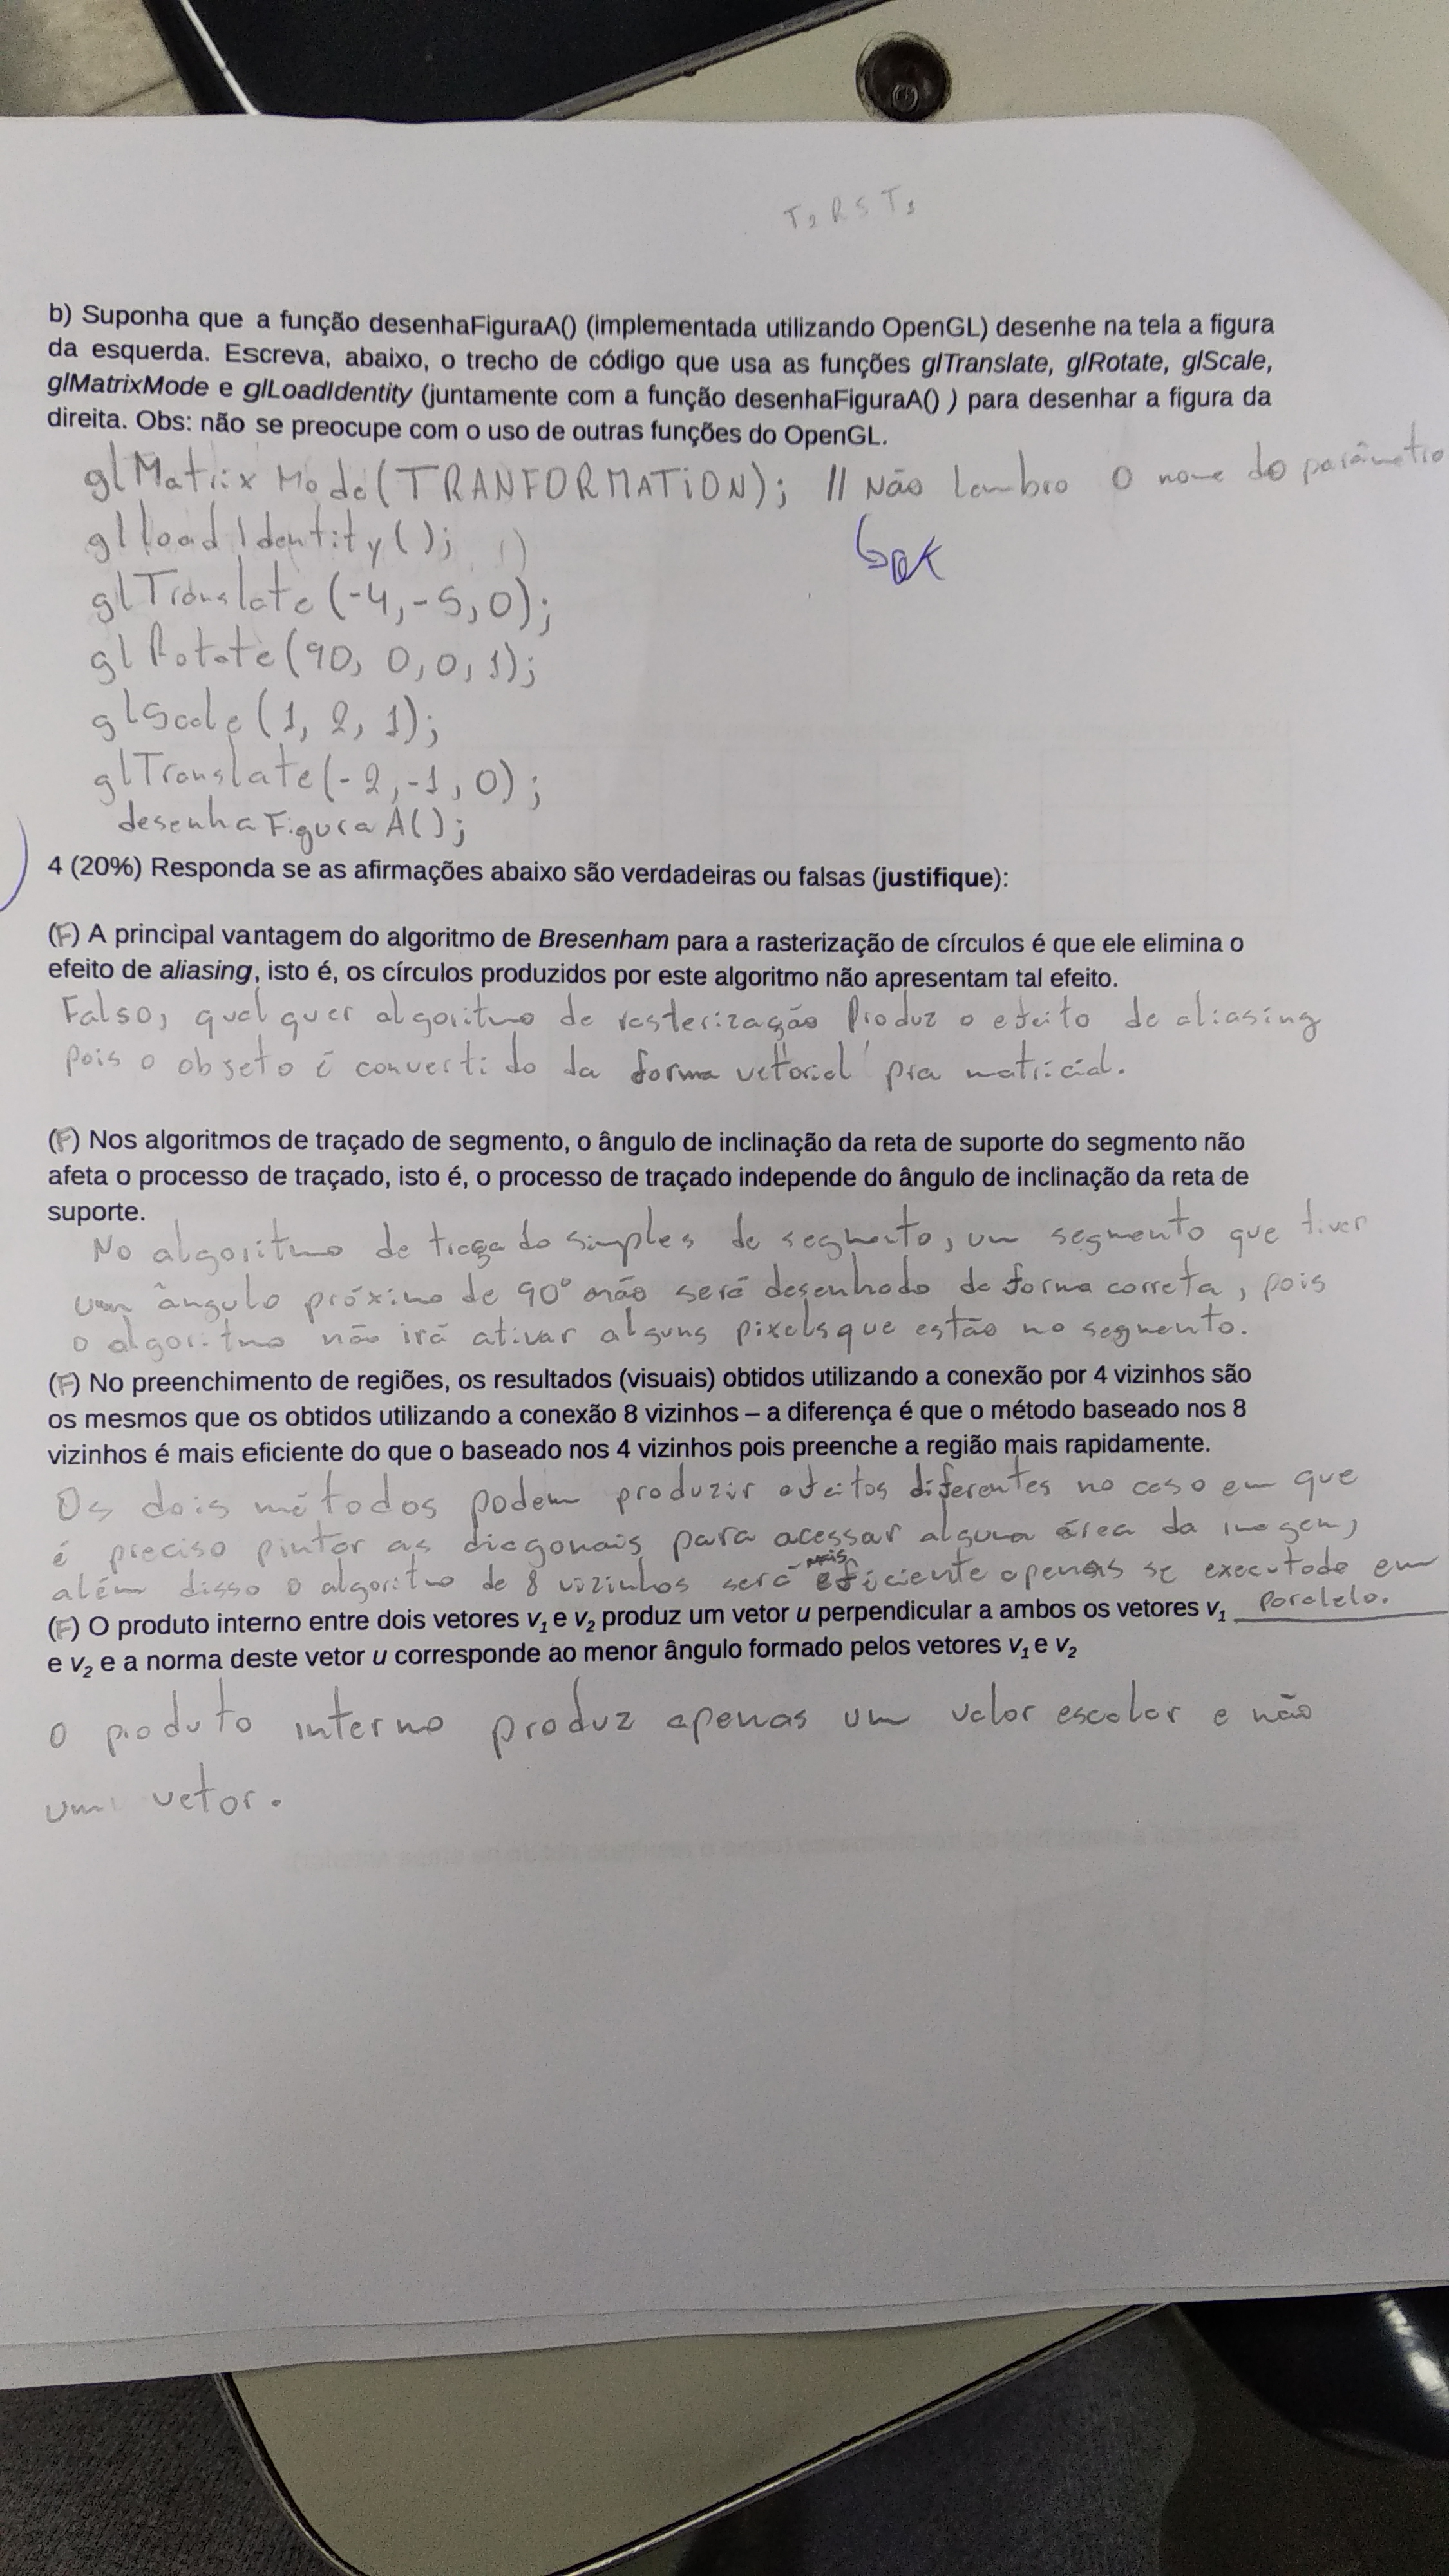 T2 R S T1
b) Suponha que a função desenhaFiguraA() (implementada utilizando OpenGL) desenhe na tela a figura
da esquerda. Escreva, abaixo, o trecho de código que usa as funções glTranslate, glRotate, glScale,
glMatrixMode e glLoadIdentity (juntamente com a função desenhaFiguraA() ) para desenhar a figura da
direita. Obs: não se preocupe com o uso de outras funções do OpenGL.
glMatrixMode(TRANFORMATION); // Não lembro o nome do parâmetro
glloadIdentity();
OK
glTranslate(-4,-5,0);
glRotate(90, 0, 0, 1);
glScale(1, 2, 1);
glTranslate(-2,-1,0);
desenhaFiguraA();
4 (20%) Responda se as afirmações abaixo são verdadeiras ou falsas (justifique):
(F) A principal vantagem do algoritmo de Bresenham para a rasterização de círculos é que ele elimina o
efeito de aliasing, isto é, os círculos produzidos por este algoritmo não apresentam tal efeito.
Falso, qualquer algoritmo de rasterização produz o efeito de aliasing
pois o objeto é convertido da forma vetorial pra matricial.
(F) Nos algoritmos de traçado de segmento, o ângulo de inclinação da reta de suporte do segmento não
afeta o processo de traçado, isto é, o processo de traçado independe do ângulo de inclinação da reta de
suporte.
No algoritmo de traçado simples de segmento, um segmento que tiver
um ângulo próximo de 90° não será desenhado de forma correta, pois
o algoritmo não irá ativar alguns pixels que estão no segmento.
(F) No preenchimento de regiões, os resultados (visuais) obtidos utilizando a conexão por 4 vizinhos são
os mesmos que os obtidos utilizando a conexão 8 vizinhos – a diferença é que o método baseado nos 8
vizinhos é mais eficiente do que o baseado nos 4 vizinhos pois preenche a região mais rapidamente.
Os dois métodos podem produzir efeitos diferentes no caso em que
é preciso pintar as diagonais para acessar alguma área da imagem,
além disso o algoritmo de 8 vizinhos será mais eficiente apenas se executado em
paralelo.
(F) O produto interno entre dois vetores v1 e v2 produz um vetor u perpendicular a ambos os vetores v1
e v2 e a norma deste vetor u corresponde ao menor ângulo formado pelos vetores v1 e v2
O produto interno produz apenas um valor escalar e não
um vetor.